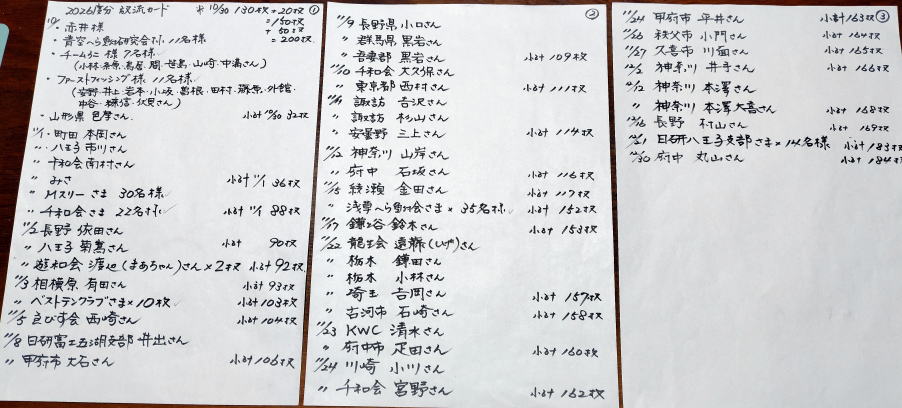 2026度分 放流カード ※10/30 130枚+20枚 ①
=150枚
+50枚
=200枚
10/・赤井様
・青空へら鮒研究会さま 11名様
・チームうに様 7名様
・ファーストフィッシング様 11名様
・山形県 色摩さん 小計10/30 32枚
11/1・町田 本岡さん
〃・八王子 市川さん
〃 千和会 南村さん
〃 みさ 小計11/1 36枚
〃 Mスリーさま 30名様
〃 千和会さま 22名さま 小計11/1 88枚
11/2 長野 依田さん
〃 八王子 菊嶌さん 小計 90枚
〃 遊和会 渡辺(まあちゃん)さん×2枚 小計92枚
11/3 相模原 有田さん 小計93枚
〃 ベストテンクラブさま×10枚 小計103枚
11/5 ゑびす会 西崎さん 小計104枚
11/8 日研富士五湖支部 井出さん
〃 甲府市 大石さん 小計106枚
②
11/9 長野県 小口さん
〃 群馬県 黒岩さん
〃 吾妻郡 黒岩さん 小計109枚
11/10 千和会 大久保さん
〃 東京都 西村さん 小計111枚
諏訪 吉沢さん
〃 諏訪 杉山さん
〃 安曇野 三上さん 小計114枚
11/12 神奈川 山岸さん
〃 府中 石坂さん 小計116枚
11/15 綾瀬 金田さん 小計117枚
〃 浅草へら鮒会さま×35名さま 小計152枚
11/17 鎌ヶ谷 鈴木さん 小計153枚
11/22 龍王会 遠藤(しげ)さん
〃 栃木 鎌田さん
〃 栃木 小林さん
〃 埼玉 吉岡さん 小計157枚
〃 古河市 石崎さん 小計158枚
11/23 KWC 清水さん
〃 府中市 疋田さん 小計160枚
11/24 川崎 小川さん
〃 千和会 宮野さん 小計162枚
11/24 甲府市 平井さん 小計163枚 ③
11/26 秩父市 小門さん 小計164枚
11/27 久喜市 川面さん 小計165枚
神奈川 井手さん 小計166枚
神奈川 本澤さん
〃 神奈川 本澤大喜さん 小計168枚
長野 村山さん 小計169枚
日研八王子支部さま×14名様 小計183枚
府中 丸山さん 小計184枚